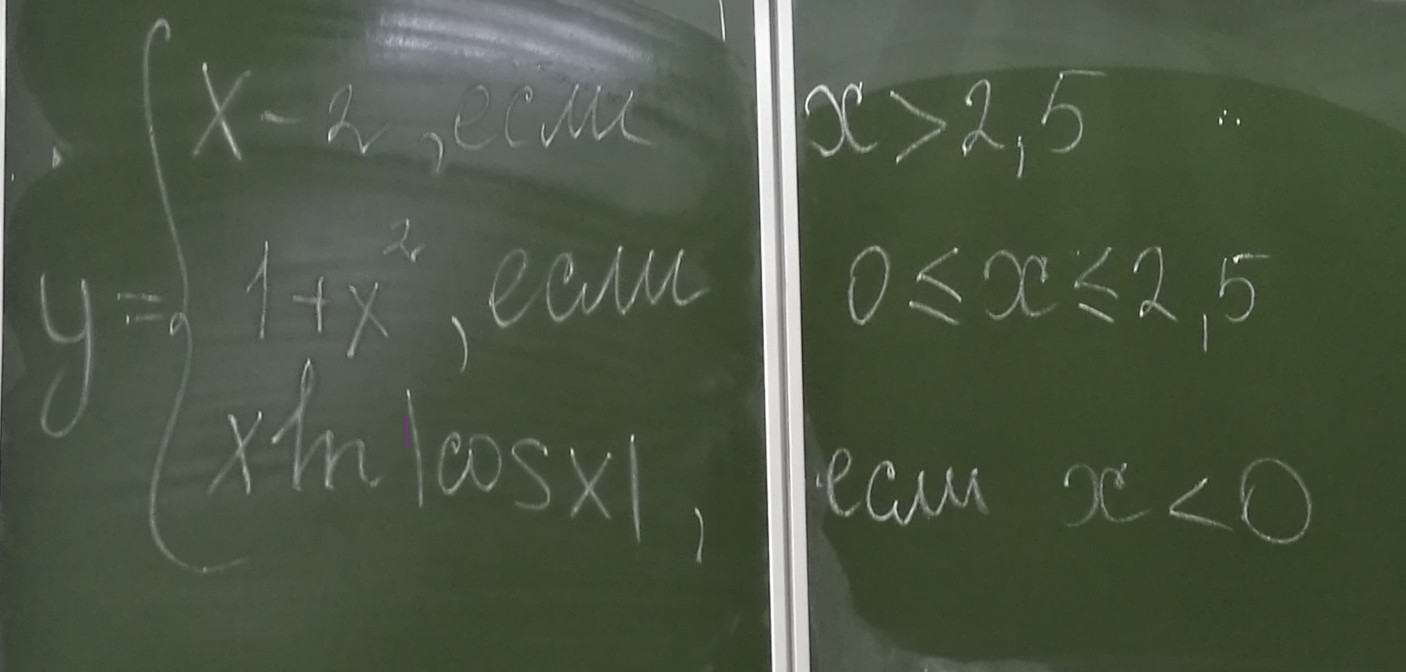 x-2, если x>2,5
y= 1+x², если 0≤x≤2,5
x ln |cosx|, если x<0